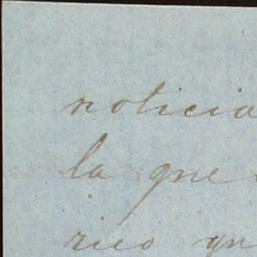 noticia
la que
rico qu